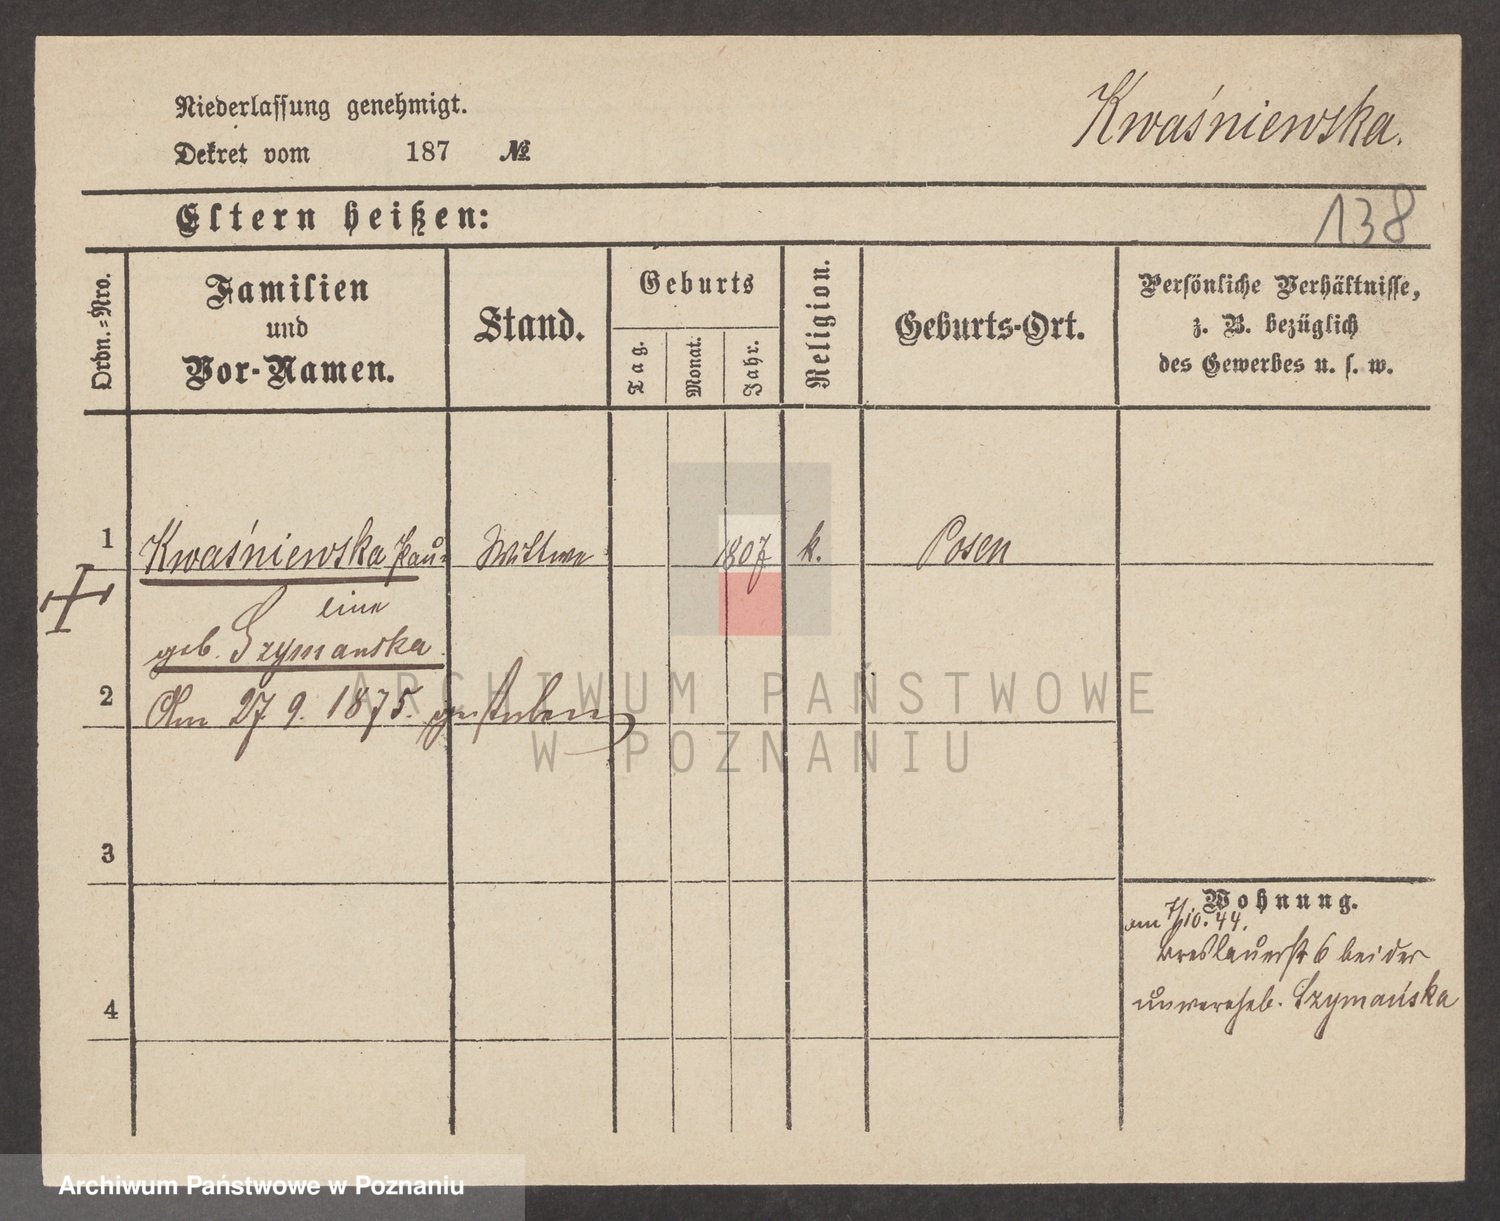 Niederlassung genehmigt.
Kwaśniewska.
Dekret vom 187 №
Eltern heißen:
138
Ordn.=Nro.
Familien
und
Vor-Namen.
Stand.
Geburts
Tag.
Monat.
Jahr.
Religion.
Geburts-Ort.
Persönliche Verhältnisse,
z. B. bezüglich
des Gewerbes u. s. w.
1 Kwaśniewska Pau= Wittwe 1807 k. Posen
line
geb. Szymanska
2 Am 27 9. 1875. gestorben
3
4
Wohnung.
am 7/10. 44.
Breslauerst 6 bei der
unvereheb. Szymańska
ARCHIWUM PAŃSTWOWE
W POZNANIU
Archiwum Państwowe w Poznaniu